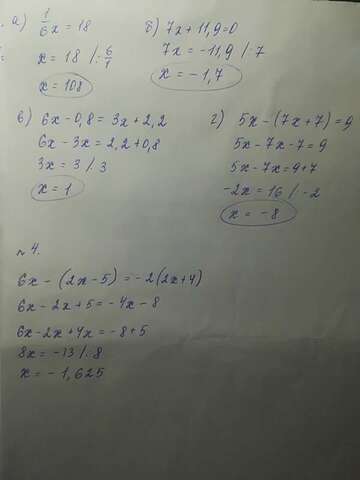 а) 1/6 x = 18
x = 18 /· 6/1
x = 108
б) 7x + 11,9 = 0
7x = -11,9 / 7
x = -1,7
в) 6x - 0,8 = 3x + 2,2
6x - 3x = 2,2 + 0,8
3x = 3 / 3
x = 1
г) 5x - (7x + 7) = 9
5x - 7x - 7 = 9
5x - 7x = 9 + 7
-2x = 16 / -2
x = -8
№ 4.
6x - (2x - 5) = -2(2x + 4)
6x - 2x + 5 = -4x - 8
6x - 2x + 4x = -8 + 5
8x = -13 /· 8
x = -1,625